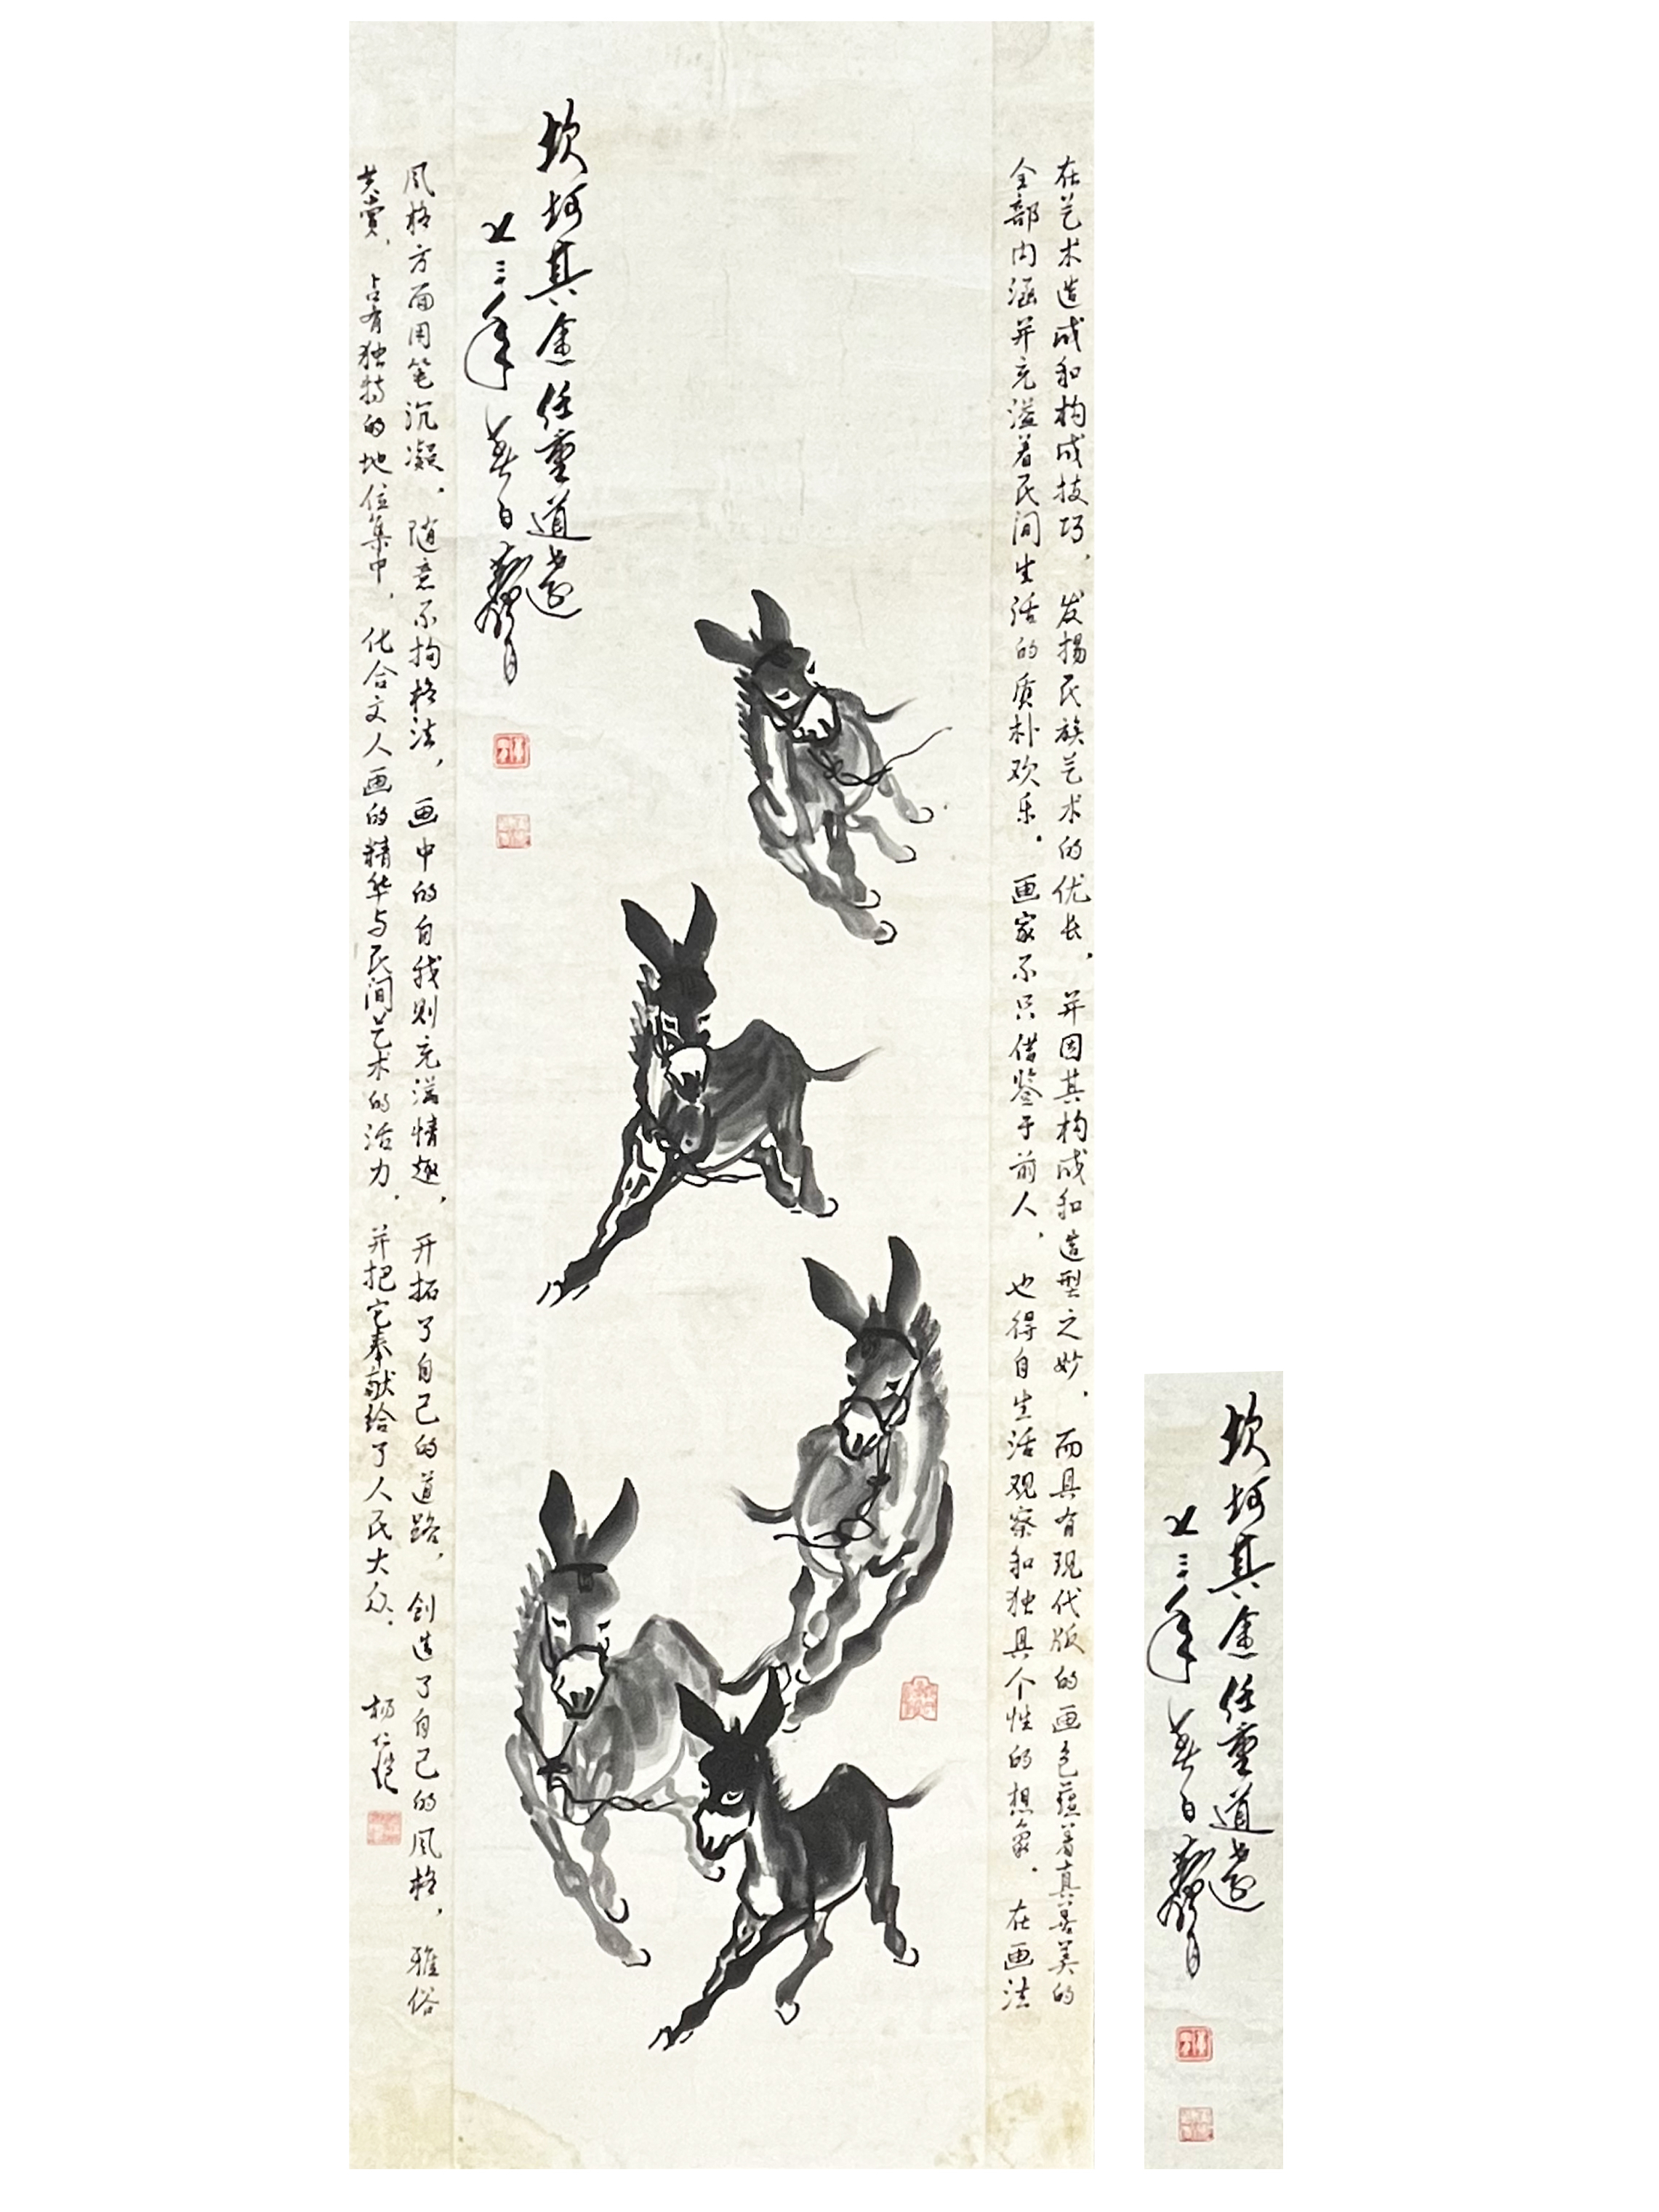 在艺术造成和构成技巧，发扬民族艺术的优长，并因其构成和造型之妙，而具有现代版的画色蕴着真善美的
全部内涵并充溢着民间生活的质朴欢乐。画家不只借鉴于前人，也得自生活观察和独具个性的想象。在画法
坎坷其途任重道远
七三年
风格方面用笔沉凝，随意不拘格法，画中的自我则充满情趣，开拓了自己的道路，创造了自己的风格，雅俗
共赏，占有独特的地位集中，化合文人画的精华与民间艺术的活力，并把它奉献给了人民大众。杨仁恺
坎坷其途任重道远
七三年